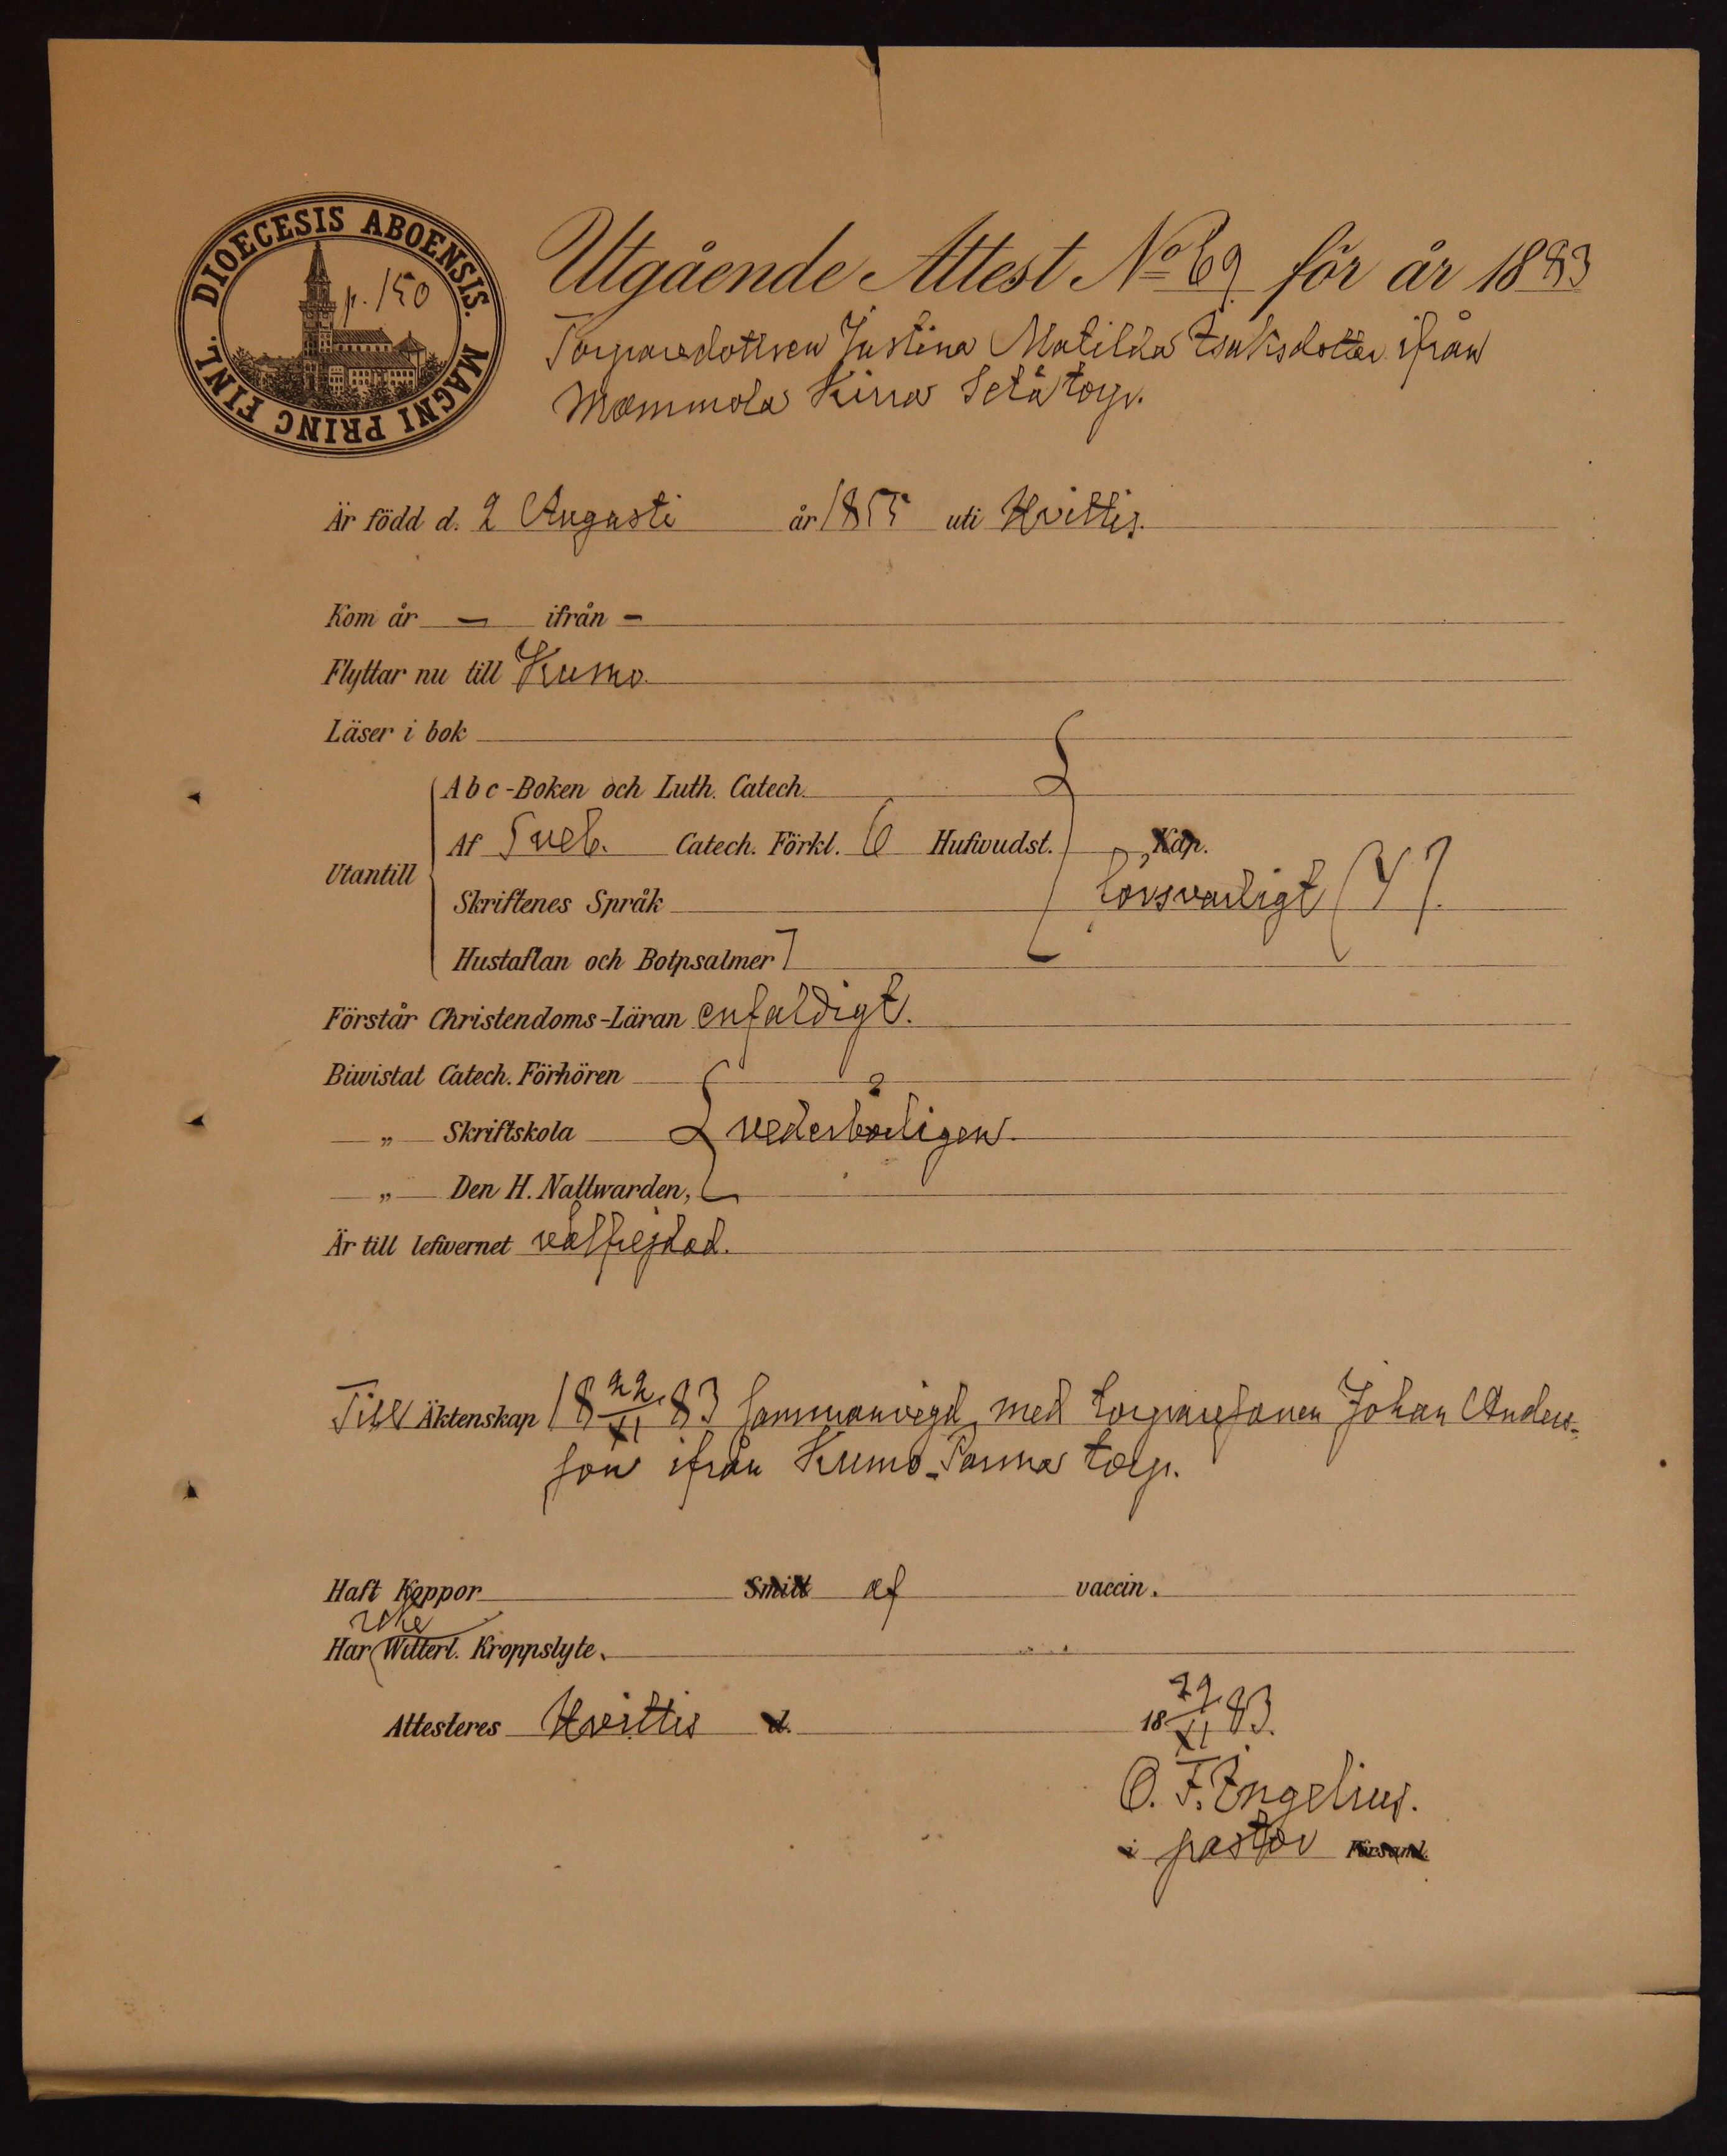 DIOECESIS ABOENSIS. MAGNI PRINC FINL.
p. 150
Utgående Attest No 69. för år 1883
Torparedottren Justina Matilda Isaksdotter ifrån
Mommola Kirra Setä torp.
Är född d. 2 Augusti år 1855 uti Hvittis.
Kom år – ifrån –
Flyttar nu till Kumo.
Läser i bok
Abc-Boken och Luth. Catech.
Af Sveb. Catech. Förkl. 6 Hufwudst. Kap.
Utantill
Skriftenes Språk försvarligt
Hustaflan och Botpsalmer
Förstår Christendoms-Läran enfaldigt.
Biwistat Catech. Förhören
„ Skriftskola vederbörligen.
„ Den H. Nattwarden,
Är till lefwernet välfrejdad.
Till Äktenskap 18 22/XI 83 sammanvigd med torparesonen Johan Anders-
son ifrån Kumo Parma torp.
Haft Koppor Smitt af vaccin.
icke
Har Witterl. Kroppslyte.
Attesteres Hvittis d. 18 29/XI 83.
O. F. Engelius.
i pastor Församl.